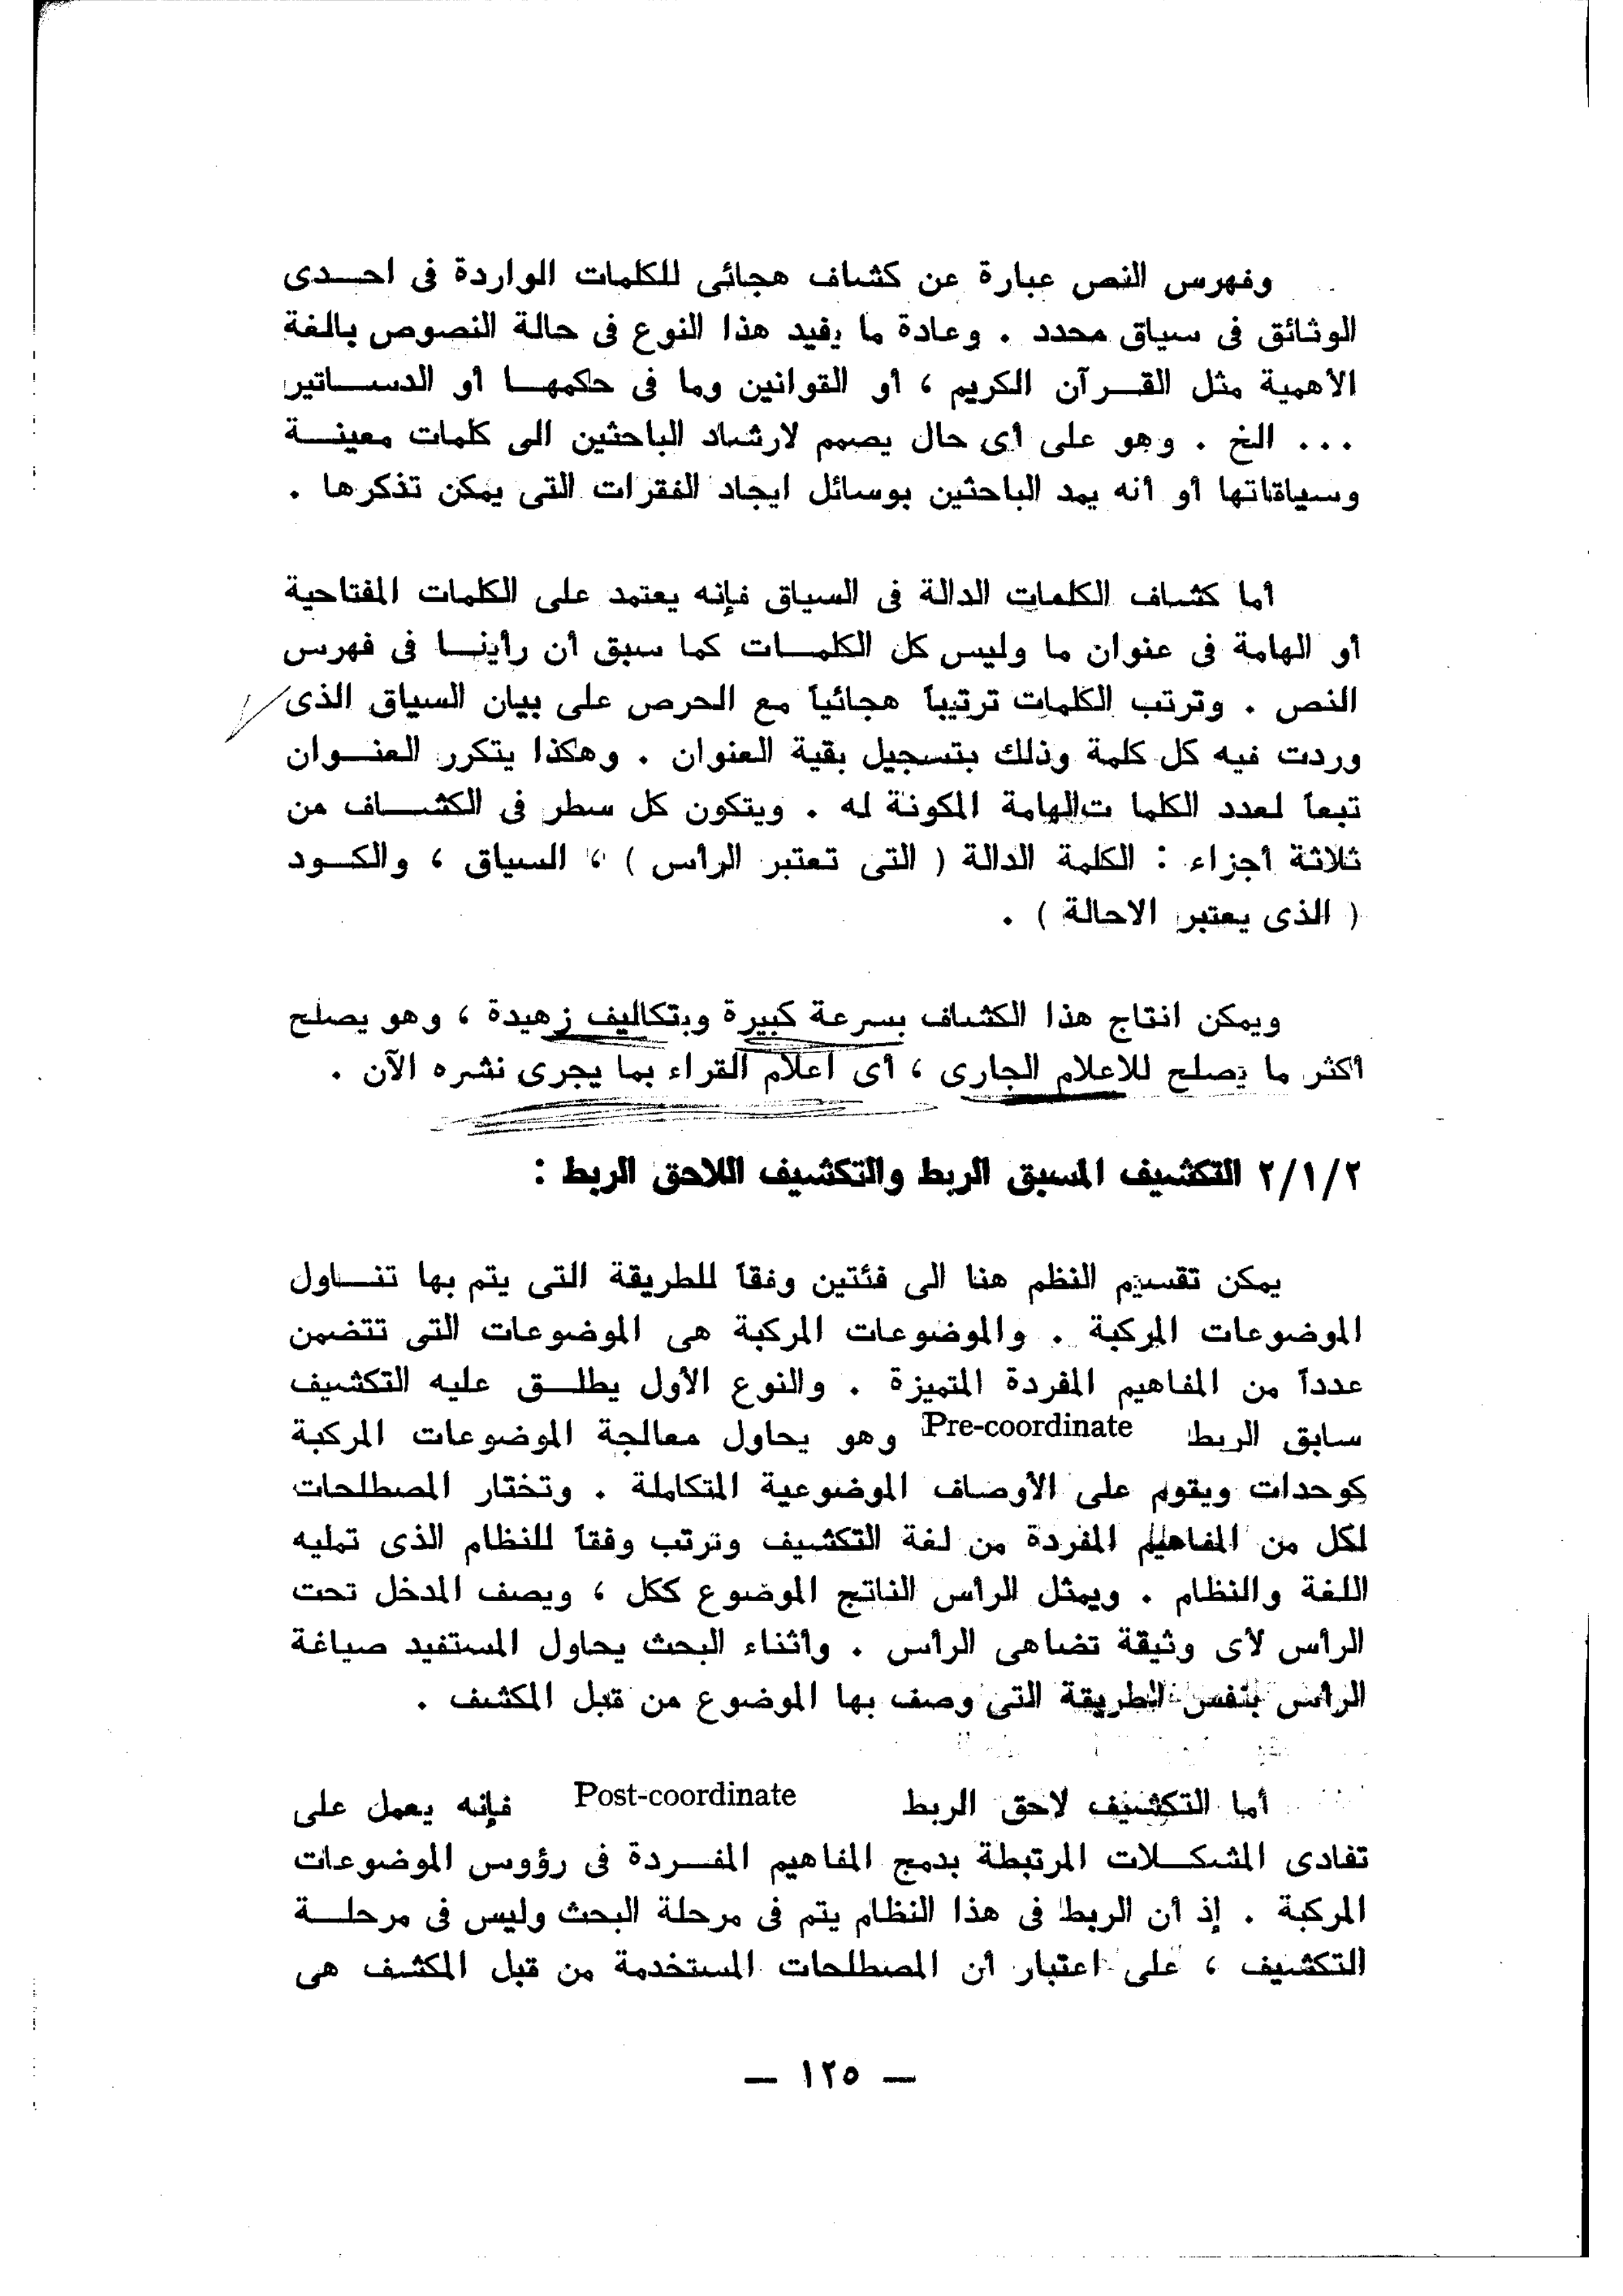 وفهرس النص عبارة عن كشاف هجائى للكلمات الواردة فى احدى
الوثائق فى سياق محدد . وعادة ما يفيد هذا النوع فى حالة النصوص بالغة
الأهمية مثل القرآن الكريم ، أو القوانين وما فى حكمها أو الدساتير
... الخ . وهو على أى حال يصمم لارشاد الباحثين الى كلمات معينة
وسياقاتها أو أنه يمد الباحثين بوسائل ايجاد الفقرات التى يمكن تذكرها .
أما كشاف الكلمات الدالة فى السياق فإنه يعتمد على الكلمات المفتاحية
أو الهامة فى عنوان ما وليس كل الكلمات كما سبق أن رأينا فى فهرس
النص . وترتب الكلمات ترتيباً هجائياً مع الحرص على بيان السياق الذى
وردت فيه كل كلمة وذلك بتسجيل بقية العنوان . وهكذا يتكرر العنوان
تبعاً لعدد الكلما تالهامة المكونة له . ويتكون كل سطر فى الكشاف من
ثلاثة أجزاء : الكلمة الدالة ( التى تعتبر الرأس ) ، السياق ، والكود
( الذى يعتبر الاحالة ) .
ويمكن انتاج هذا الكشاف بسرعة كبيرة وبتكاليف زهيدة ، وهو يصلح
أكثر ما يصلح للاعلام الجارى ، أى اعلام القراء بما يجرى نشره الآن .
٢/١/٢ التكشيف المسبق الربط والتكشيف اللاحق الربط :
يمكن تقسيم النظم هنا الى فئتين وفقاً للطريقة التى يتم بها تناول
الموضوعات المركبة . والموضوعات المركبة هى الموضوعات التى تتضمن
عدداً من المفاهيم المفردة المتميزة . والنوع الأول يطلق عليه التكشيف
سابق الربط Pre-coordinate وهو يحاول معالجة الموضوعات المركبة
كوحدات ويقوم على الأوصاف الموضوعية المتكاملة . وتختار المصطلحات
لكل من المفاهيم المفردة من لغة التكشيف وترتب وفقاً للنظام الذى تمليه
اللغة والنظام . ويمثل الرأس الناتج الموضوع ككل ، ويصف المدخل تحت
الرأس لأى وثيقة تضاهى الرأس . وأثناء البحث يحاول المستفيد صياغة
الرأس بنفس الطريقة التى وصف بها الموضوع من قبل المكشف .
أما التكشيف لاحق الربط Post-coordinate فإنه يعمل على
تفادى المشكلات المرتبطة بدمج المفاهيم المفردة فى رؤوس الموضوعات
المركبة . إذ أن الربط فى هذا النظام يتم فى مرحلة البحث وليس فى مرحلة
التكشيف ، على اعتبار أن المصطلحات المستخدمة من قبل المكشف هى
— ١٢٥ —